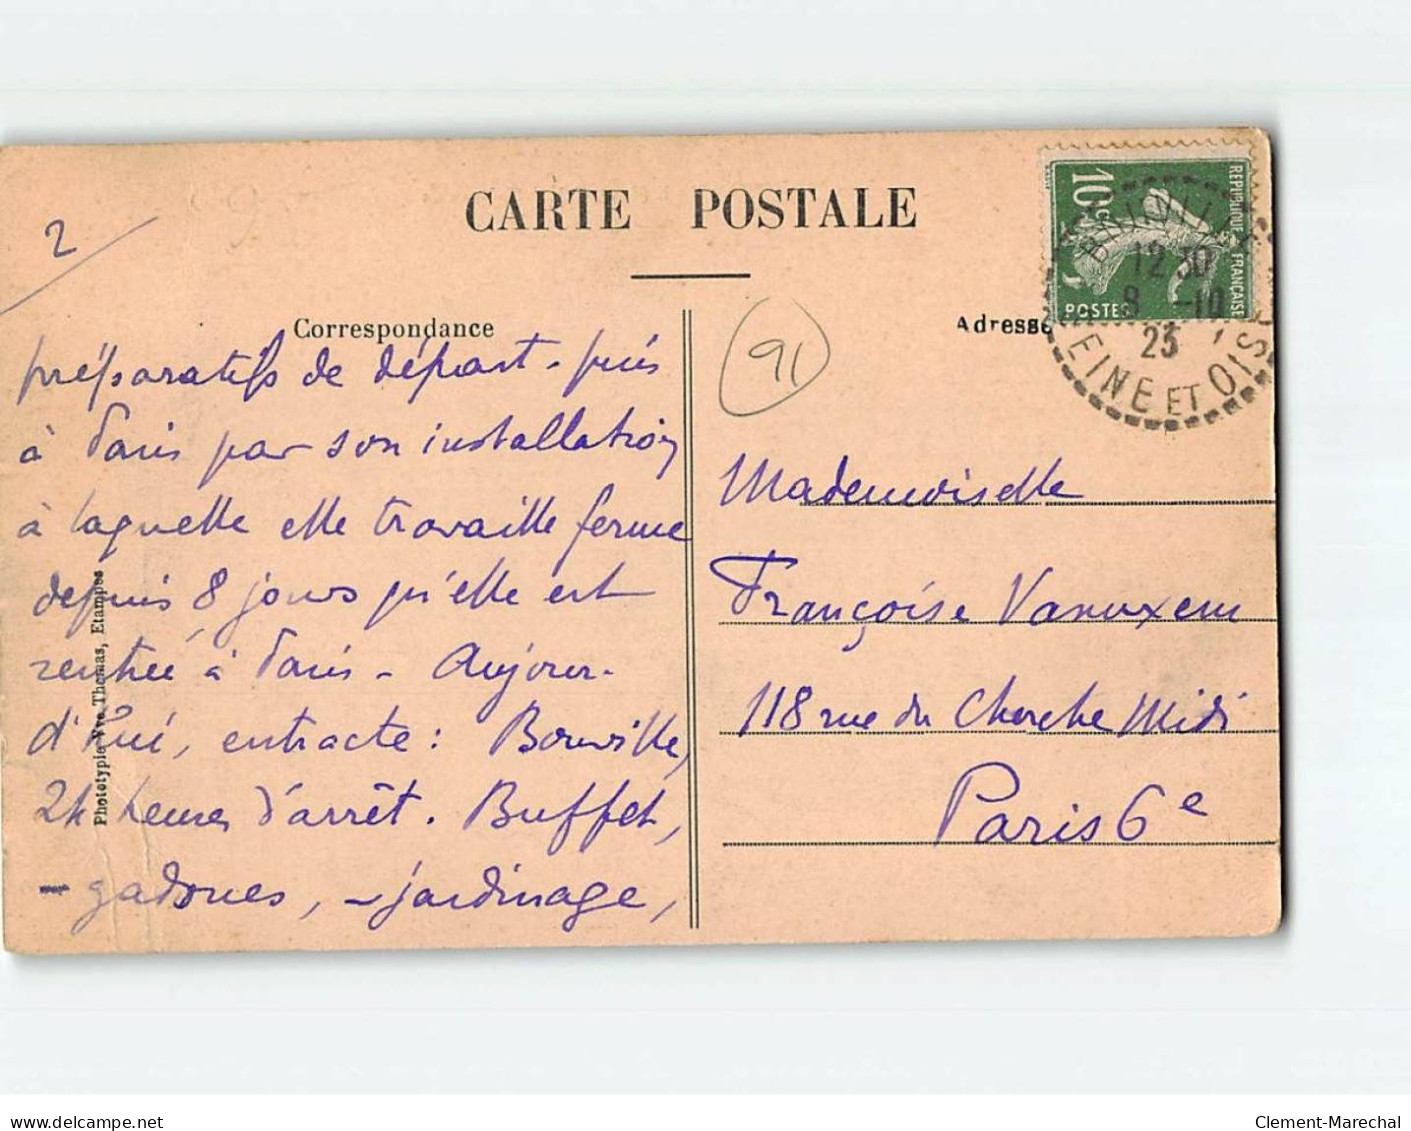 CARTE POSTALE
2
Correspondance
préparatifs de départ - puis
à Paris par son installation
à laquelle elle travaille ferme
depuis 8 jours qu'elle est
rentrée à Paris - Aujour-
d'hui, entracte : Bouville,
24 heures d'arrêt. Buffet,
- gadoues, - jardinage,
Phototypie Vve Thomas, Etampes
91
Adresse
REPUBLIQUE FRANÇAISE
10c
POSTES
BOUVILLE
12 30
8 -10
23
SEINE ET OISE
Mademoiselle
Françoise Vanuxem
118 rue du Cherche Midi
Paris 6e
delcampe.net
Clement-Marechal